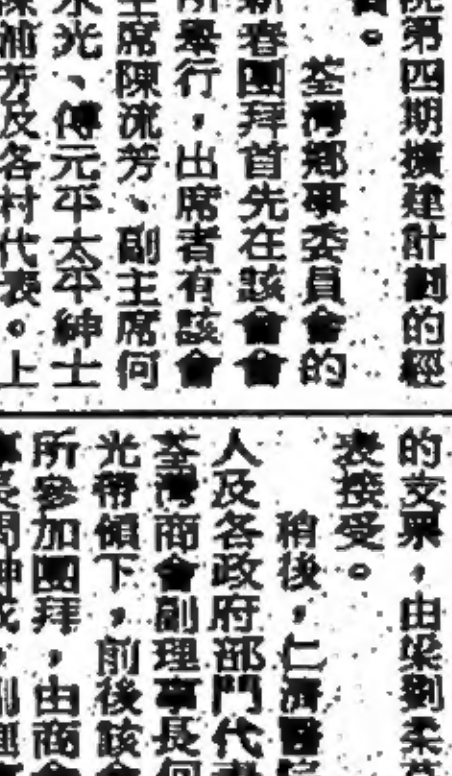 院第四期擴建計劃的經
費。
荃灣鄉事委員會的
新春團拜首先在該會會
所舉行，出席者有該會
主席陳流芳、副主席何
水光、傅元平太平紳士
陳浦芳及各村代表。上
的支票，由梁劉柔芬
表接受。
稍後，仁濟醫院
人及各政府部門代表
荃灣商會副理事長何
光帶領下，前後該會
所參加團拜，由商會
事長周坤成，副理事